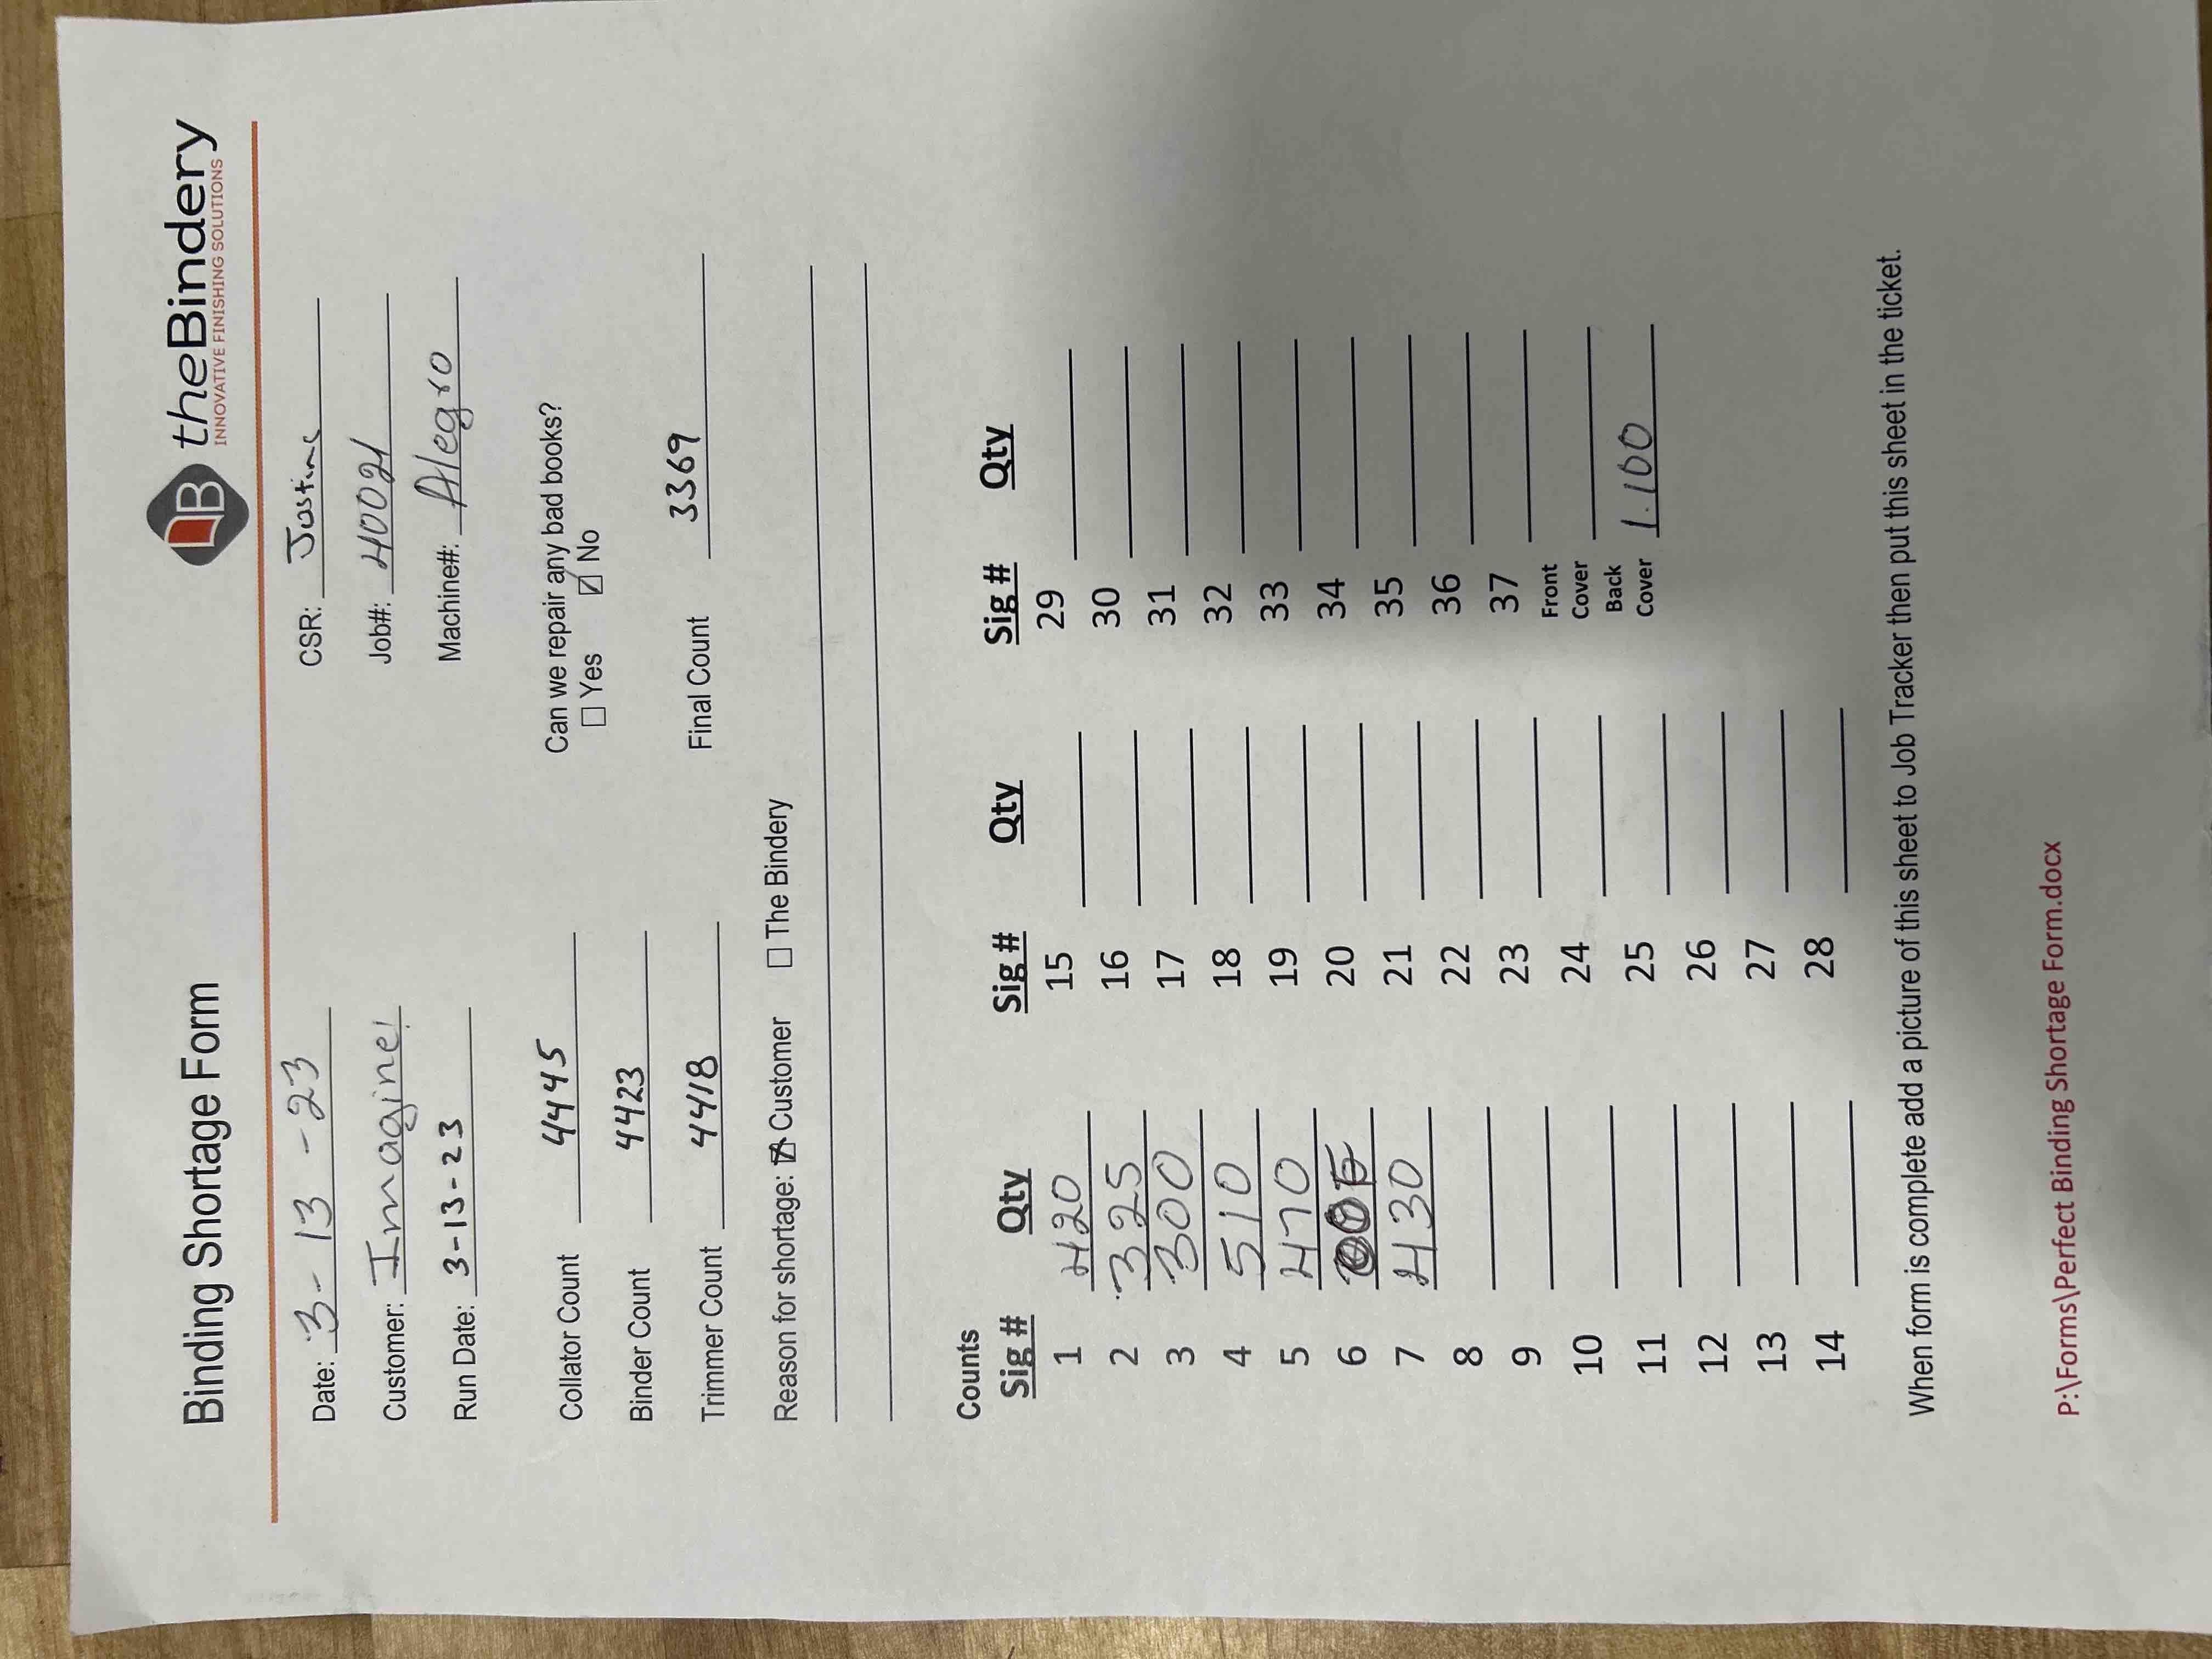 Binding Shortage Form
theBindery
INNOVATIVE FINISHING SOLUTIONS
Date: 3-13-23 CSR: Justine
Customer: Imagine! Job#: 40021
Run Date: 3-13-23 Machine#: Alegro
Collator Count 4445 Can we repair any bad books?
☐ Yes ☑ No
Binder Count 4423
Trimmer Count 4418 Final Count 3369
Reason for shortage: ☒ Customer ☐ The Bindery
Counts
Sig # Qty Sig # Qty Sig # Qty
1 420 15 29
2 325 16 30
3 300 17 31
4 510 18 32
5 470 19 33
6 20 34
7 430 21 35
8 22 36
9 23 37
10 24 Front Cover
11 25 Back Cover 1.100
12 26
13 27
14 28
When form is complete add a picture of this sheet to Job Tracker then put this sheet in the ticket.
P:\Forms\Perfect Binding Shortage Form.docx